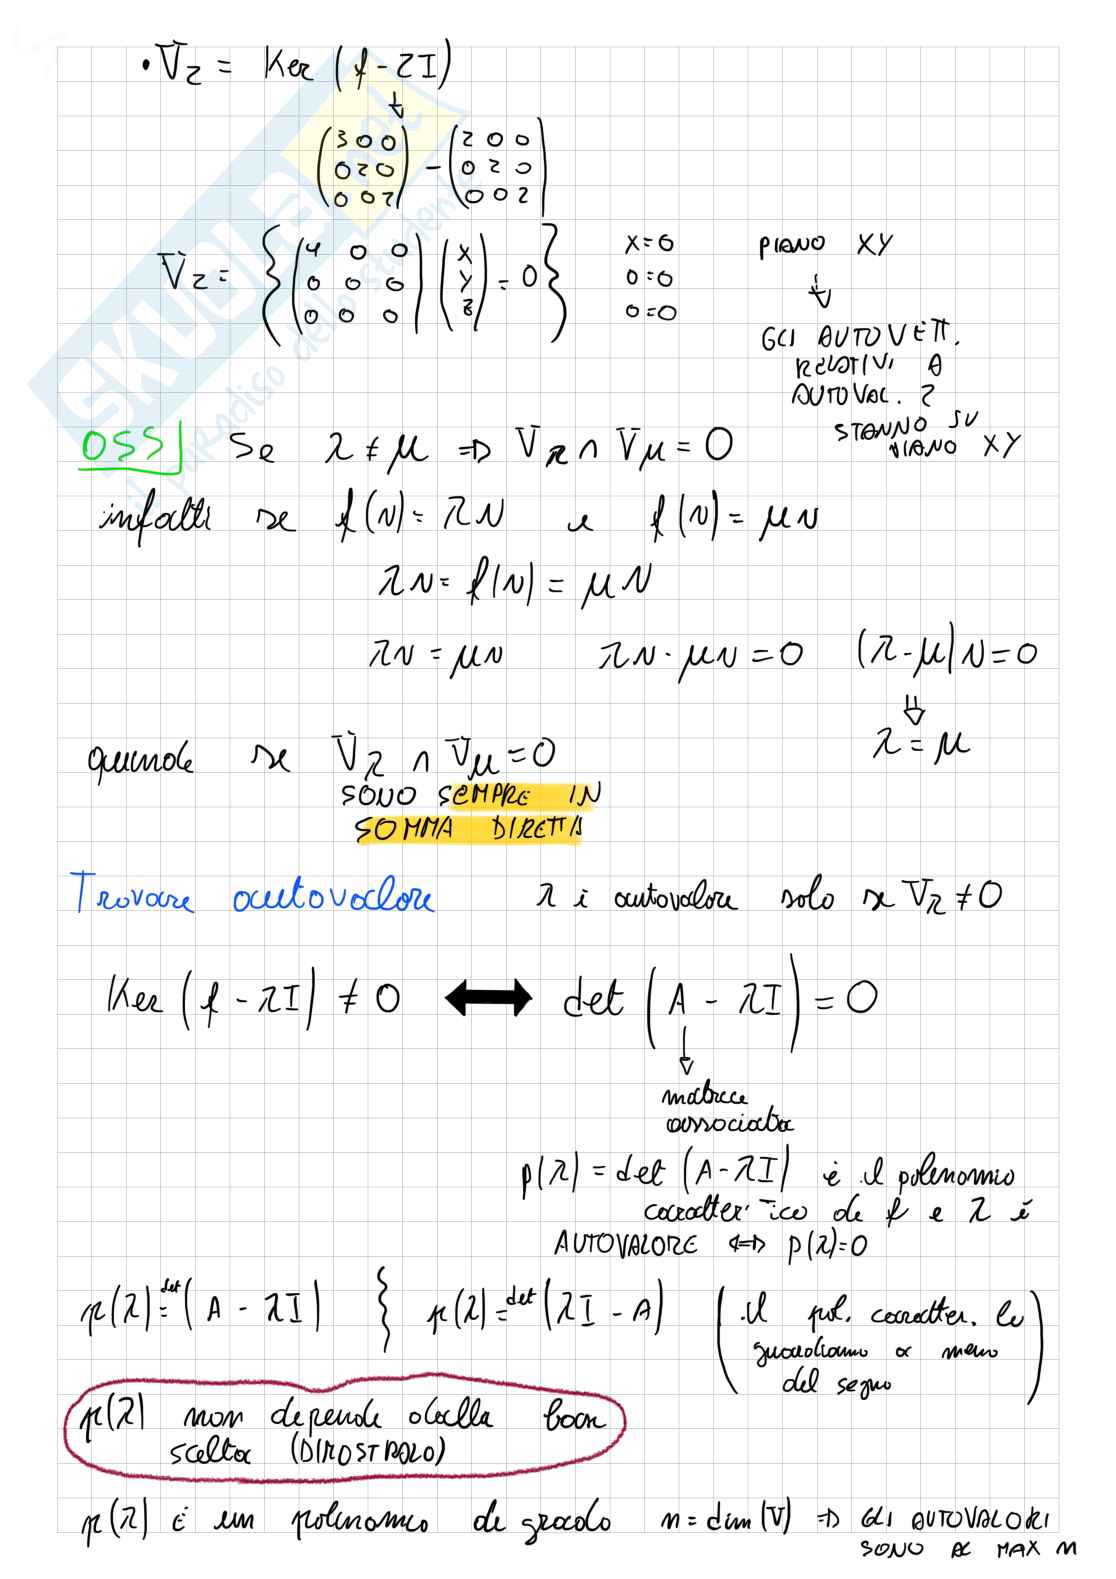 • V₂ = Ker (f - 2I)
↓
(3 0 0 / 0 2 0 / 0 0 2) - (2 0 0 / 0 2 0 / 0 0 2)
V₂ = { (1 0 0 / 0 0 0 / 0 0 0) (x / y / z) = 0 } x=0 0=0 0=0
PIANO XY
↓
GLI AUTOVETT.
RELATIVI A
AUTOVAL. 2
STANNO SU
PIANO XY
OSS] Se λ ≠ μ ⇒ Vλ ∩ Vμ = 0
infatti se f(v) = λv e f(v) = μv
λv = f(v) = μv
λv = μv λv - μv = 0 (λ-μ)v = 0
⇓
λ = μ
quindi se Vλ ∩ Vμ = 0
SONO SEMPRE IN
SOMMA DIRETTA
Trovare autovalore λ è autovalore solo se Vλ ≠ 0
Ker (f - λI) ≠ 0 ⟷ det (A - λI) = 0
↓
matrice
associata
p(λ) = det (A-λI) è il polinomio
caratteristico di f e λ è
AUTOVALORE ⇔ p(λ)=0
p(λ) = det (A - λI) } p(λ) = det (λI - A) (il pol. caratter. lo
guardiamo a meno
del segno)
p(λ) non dipende dalla base
scelta (DIMOSTRALO)
p(λ) è un polinomio di grado n = dim(V) ⇒ GLI AUTOVALORI
SONO AL MAX n
SKUOLA.net
il paradiso dello studente